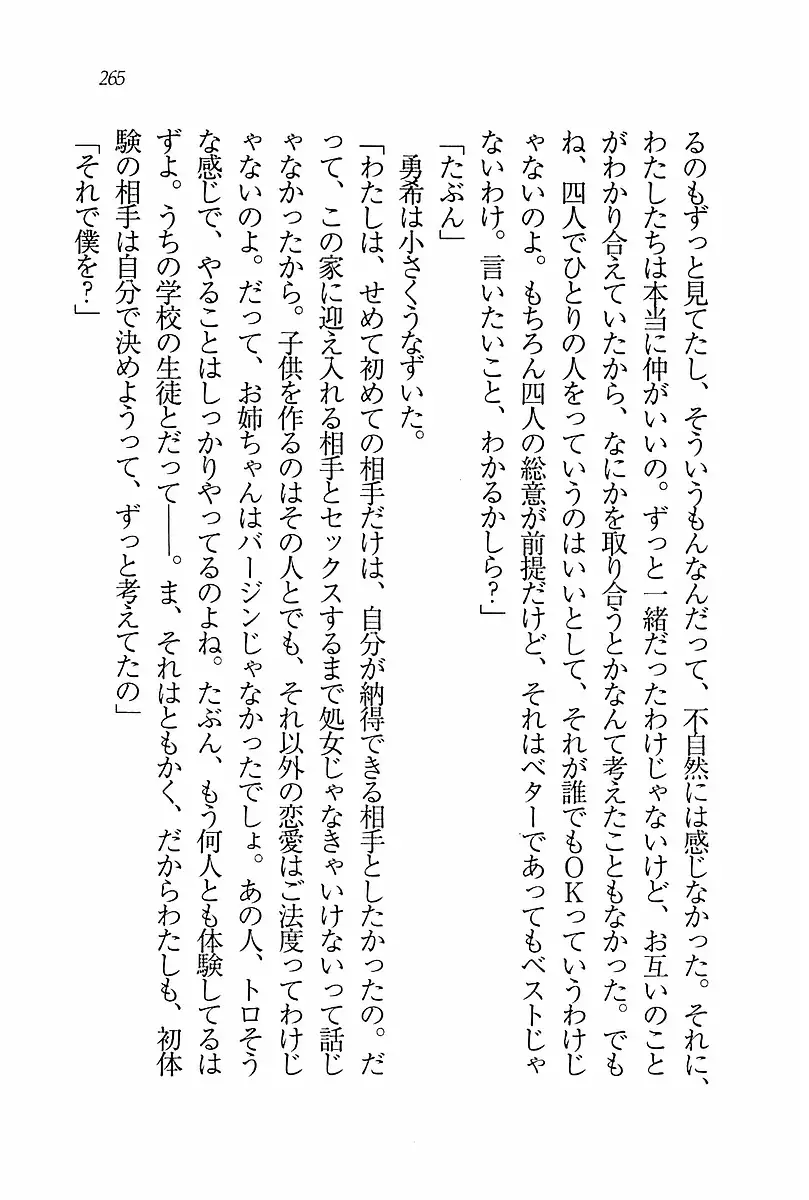 265
るのもずっと見てたし、そういうもんなんだって、不自然には感じなかった。それに、
わたしたちは本当に仲がいいの。ずっと一緒だったわけじゃないけど、お互いのこと
がわかり合えていたから、なにかを取り合うとかなんて考えたこともなかった。でも
ね、四人でひとりの人をっていうのはいいとして、それが誰でもOKっていうわけじ
ゃないのよ。もちろん四人の総意が前提だけど、それはベターであってもベストじゃ
ないわけ。言いたいこと、わかるかしら?」
「たぶん」
勇希は小さくうなずいた。
「わたしは、せめて初めての相手だけは、自分が納得できる相手としたかったの。だ
って、この家に迎え入れる相手とセックスするまで処女じゃなきゃいけないって話じ
ゃなかったから。子供を作るのはその人とでも、それ以外の恋愛はご法度ってわけじ
ゃないのよ。だって、お姉ちゃんはバージンじゃなかったでしょ。あの人、トロそう
な感じで、やることはしっかりやってるのよね。たぶん、もう何人とも体験してるは
ずよ。うちの学校の生徒とだって――。ま、それはともかく、だからわたしも、初体
験の相手は自分で決めようって、ずっと考えてたの」
「それで僕を?」